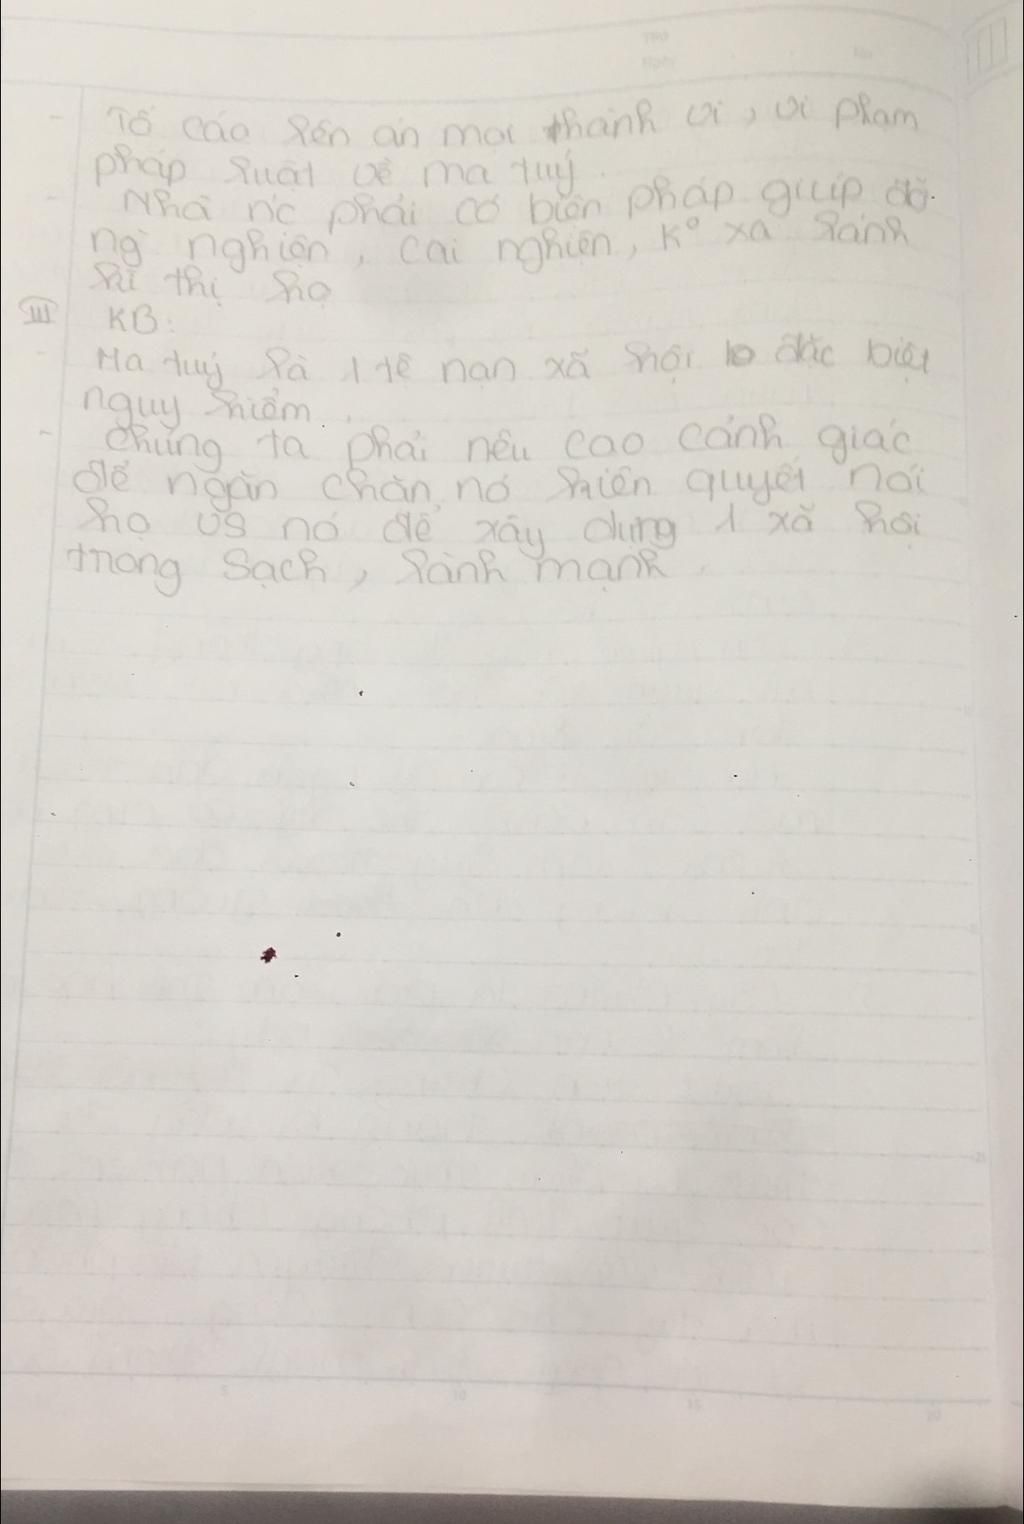 - Tố cáo lên án mọi hành vi, vi phạm
pháp luật về ma tuý.
- Nhà nc phải có biện pháp giúp đỡ
ng nghiện, cai nghiện, K° xa lánh
kì thị họ
III KB:
- Ma tuý là 1 tê nạn xã hội đặc biệt
nguy hiểm.
- Chúng ta phải nêu cao cảnh giác
để ngăn chặn nó kiên quyết nói
họ vs nó để xây dựng 1 xã hội
trong sạch, lành mạnh.